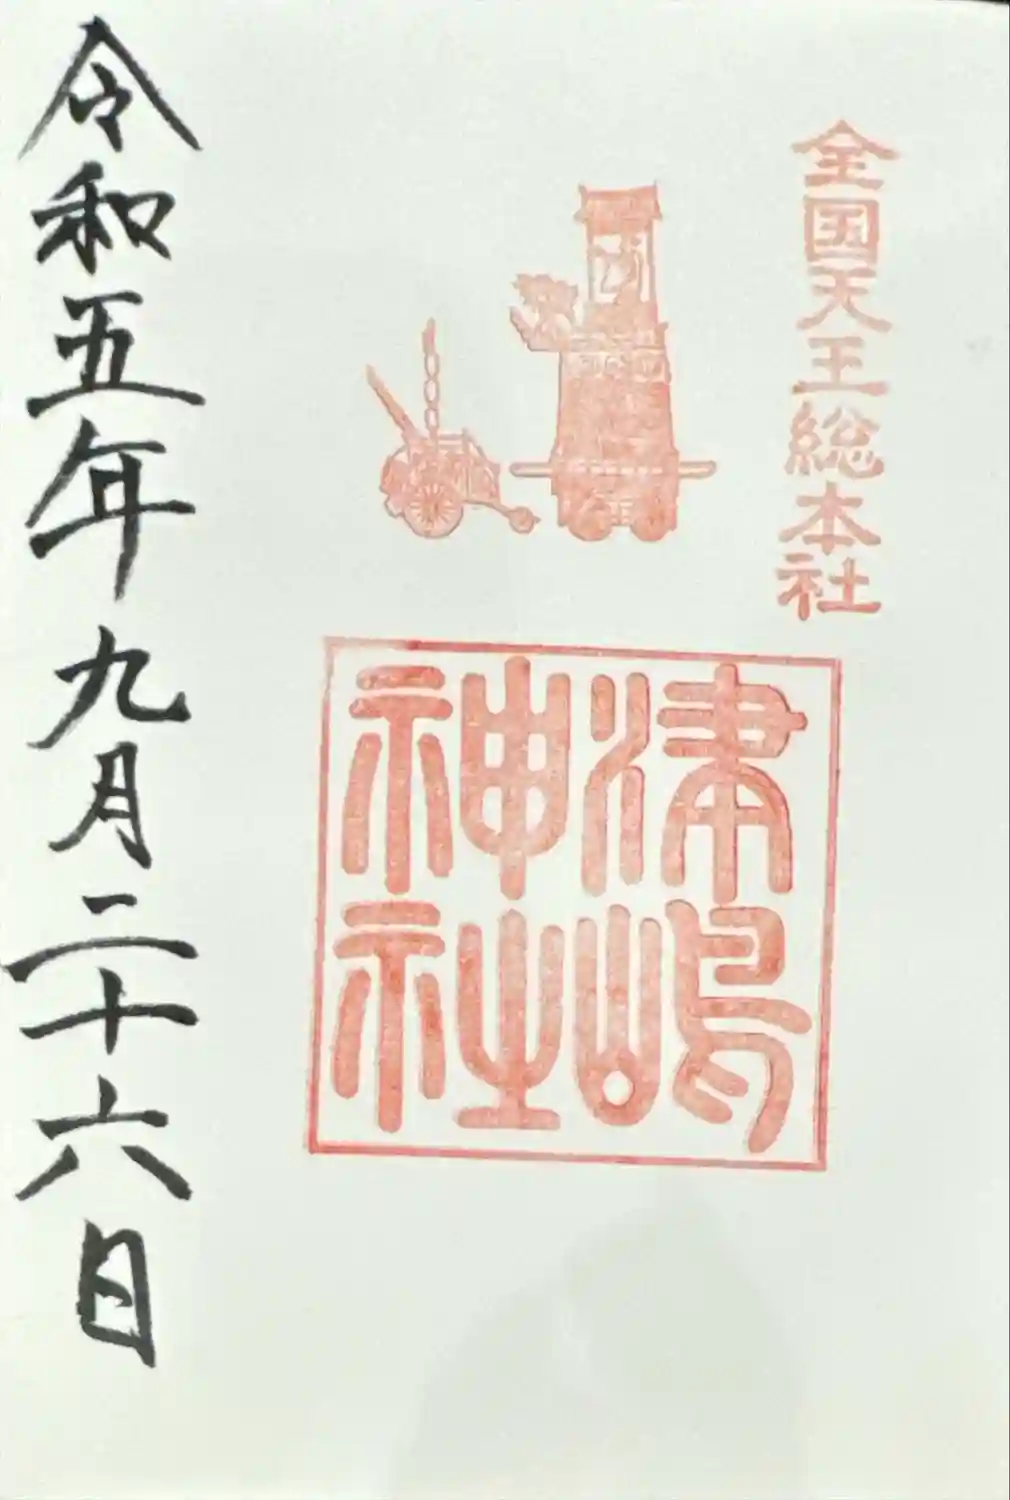 全国天王総本社
津嶋神社
令和五年九月二十六日